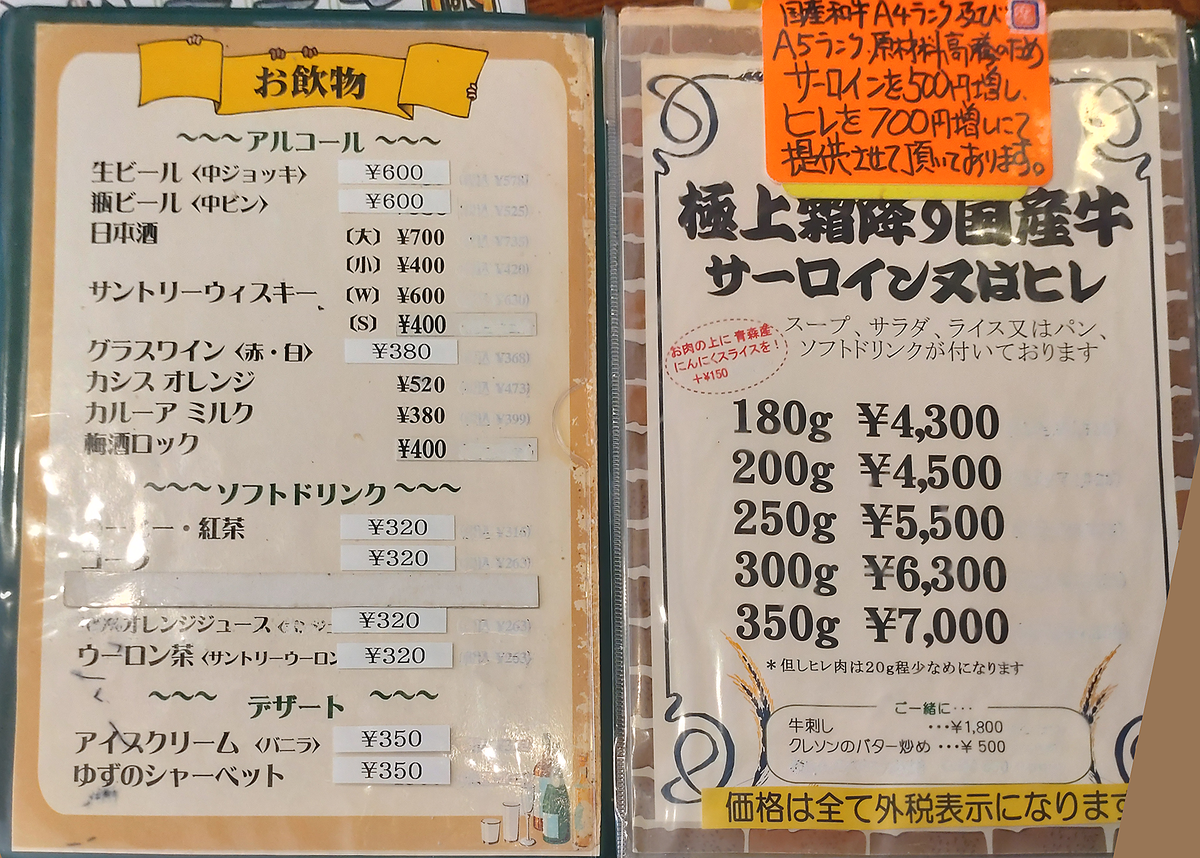 お飲物
～～～アルコール～～～
生ビール〈中ジョッキ〉 ¥600
瓶ビール〈中ビン〉 ¥600
日本酒 〔大〕 ¥700
〔小〕 ¥400
サントリーウィスキー 〔W〕 ¥600
〔S〕 ¥400
グラスワイン〈赤・白〉 ¥380
カシス オレンジ ¥520
カルーア ミルク ¥380
梅酒ロック ¥400
～～～ソフトドリンク～～～
・紅茶 ¥320
¥320
オレンジジュース ¥320
ウーロン茶〈サントリーウーロン ¥320
～～～ デザート ～～～
アイスクリーム〈バニラ〉 ¥350
ゆずのシャーベット ¥350
国産和牛A4ランク及び
A5ランク、原材料高騰のため
サーロインを500円増し、
ヒレを700円増しにて
提供させて頂いてあります。
極上霜降り国産牛
サーロイン又はヒレ
スープ、サラダ、ライス又はパン、
ソフトドリンクが付いております
お肉の上に青森産
にんにくスライスを！
＋¥150
180g ¥4,300
200g ¥4,500
250g ¥5,500
300g ¥6,300
350g ¥7,000
＊但しヒレ肉は20g程少なめになります
ご一緒に…
牛刺し …¥1,800
クレソンのバター炒め …¥ 500
価格は全て外税表示になります